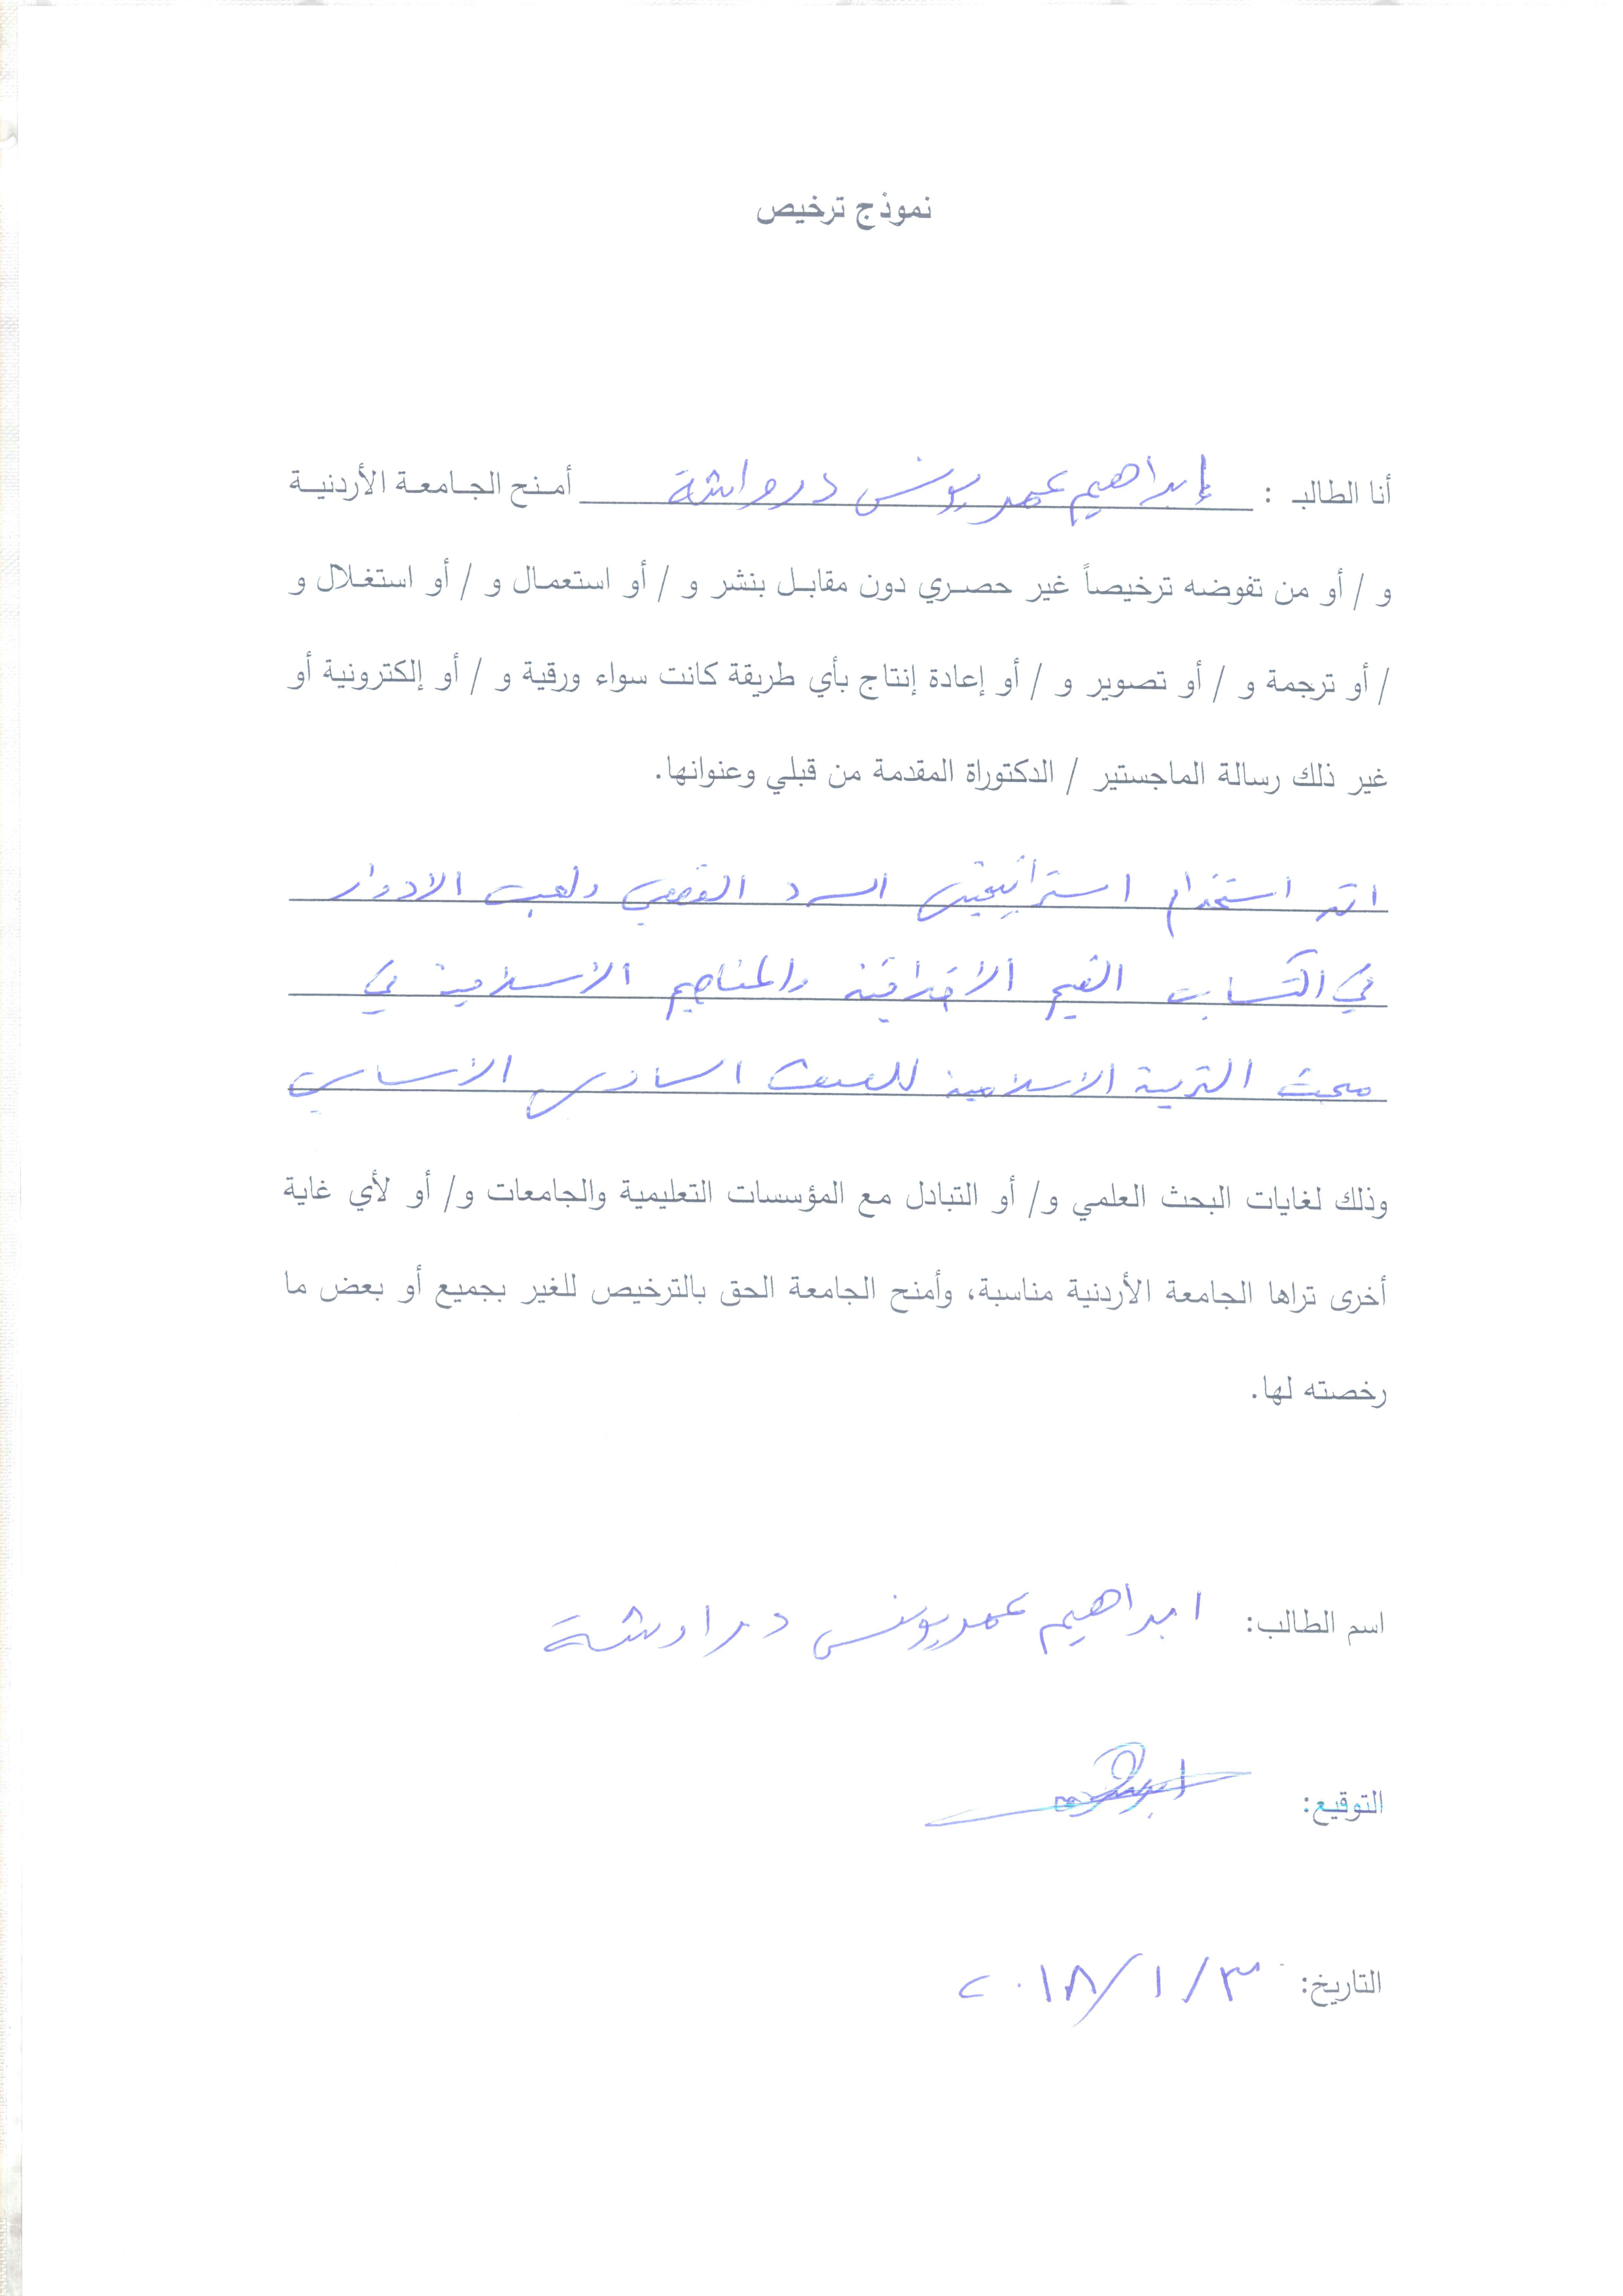 نموذج ترخيص
أنا الطالب : إبراهيم عمر يونس درواشة أمنح الجامعة الأردنية
و / أو من تفوضه ترخيصاً غير حصري دون مقابل بنشر و / أو استعمال و / أو استغلال و
/ أو ترجمة و / أو تصوير و / أو إعادة إنتاج بأي طريقة كانت سواء ورقية و / أو إلكترونية أو
غير ذلك رسالة الماجستير / الدكتوراة المقدمة من قبلي وعنوانها.
اثر استخدام استراتيجيتي السرد القصصي ولعب الادوار
في اكتساب القيم الأخلاقية والمفاهيم الإسلامية في
مبحث التربية الاسلامية للصف السادس الأساسي
وذلك لغايات البحث العلمي و/ أو التبادل مع المؤسسات التعليمية والجامعات و/ أو لأي غاية
أخرى تراها الجامعة الأردنية مناسبة، وأمنح الجامعة الحق بالترخيص للغير بجميع أو بعض ما
رخصته لها.
اسم الطالب: ابراهيم عمر يونس دراوشة
التوقيع:
التاريخ: ٣ / ١ / ٢٠١٨